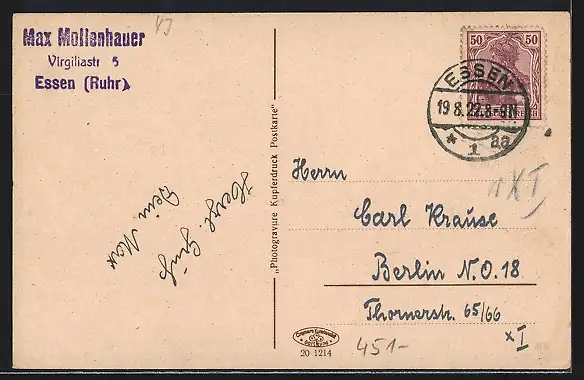 Max Mollenhauer
Virgiliastr 5
Essen (Ruhr)
Herzl. Gruß
Dein Max
„Photogravure Kupferdruck Postkarte"
50 50
ESSEN
19 8.22.8-9N
* 1 aa
Herrn
Carl Krause
Berlin N.O.18
Thornerstr. 65/66
xI
XI
20 1214
451-